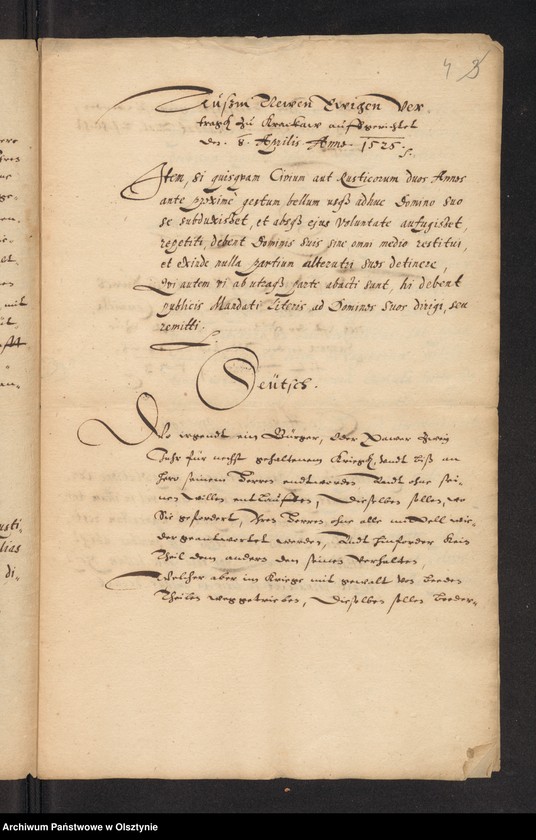 4 3
Außm Newen Ewigen Ver
tragk zu Krackaw auffgerichtet
den. 8. Aprilis Anno. 1525.
Item, si quispiam Civium aut Rusticorum duos Annos
ante pxime gestum bellum usq adhuc Domino suo
se subduxisset, et absq ejus voluntate aufugisset,
repetiti, debent Dominis suis sine omni medio restitui,
et exinde nulla partium alterutri suos detinere,
Qui autem vi ab utraq parte abacti sunt, hi debent
publicis Mandati Literis ad Dominos suos dirigi, seu
remitti.
Deütsch.
Wo irgendt ein Bürger, oder Pawar zwey
Jahr für nechst gehaltenem Kriegk, undt biß an
herr seinem Herren endtworden Undt ohne sei-
nen willen entlauffen, Dieselben sollen, wo
Sie gefordert, Ihren Herren ohne alle mittell wie-
der geantwortet werden, Undt hinforder kein
Theil dem andern den seinen verhalten,
Welcher aber im Kriege mit gewalt von beeden
Theilen weggetrieben, Dieselben sollen beeder-
usti-
lias
di-
mit
Archiwum Państwowe w Olsztynie